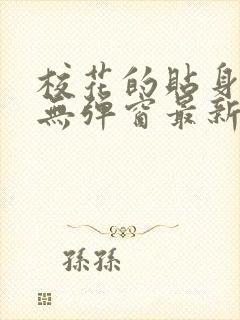 校花的貼身
無彈窗最新
孫孫